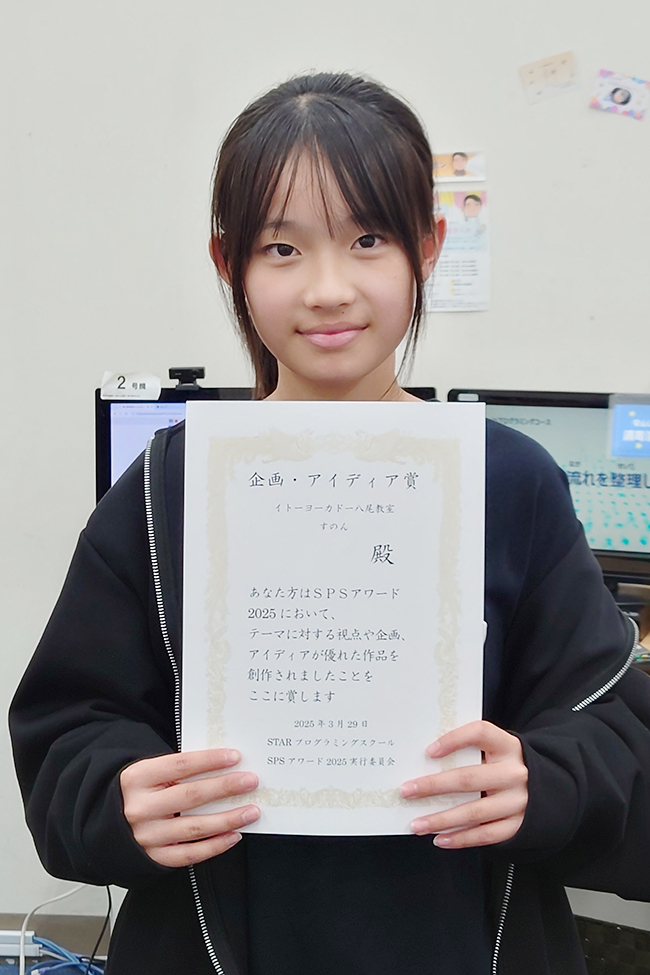 2 号機
プログラミングコース
流れを整理し
企画・アイディア賞
イトーヨーカドー八尾教室
すのん
殿
あなた方はSPSアワード
2025 において、
テーマに対する視点や企画、
アイディアが優れた作品を
創作されましたことを
ここに賞します
2025 年 3 月 29 日
STAR プログラミングスクール
SPS アワード 2025 実行委員会